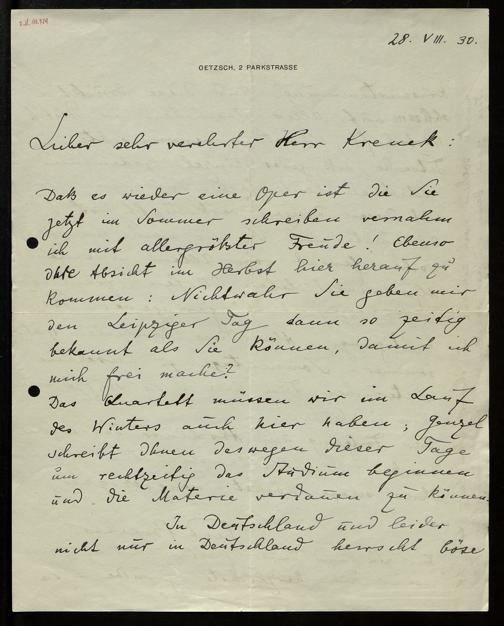 28. VIII. 30.
OETZSCH, 2 PARKSTRASSE
Lieber sehr verehrter Herr Krenek:
Daß es wieder eine Oper ist die Sie
jetzt im Sommer schreiben vernahm
ich mit allergrößter Freude! Ebenso
Ihre Absicht im Herbst hier herauf zu
kommen: Nichtwahr Sie geben mir
den Leipziger Tag dann so zeitig
bekannt als Sie können, damit ich
mich frei mache?
Das Quartett müssen wir im Lauf
des Winters auch hier haben; Genzel
schreibt Ihnen deswegen dieser Tage
um rechtzeitig das Studium beginnen
und die Materie verdauen zu können.
In Deutschland und leider
nicht nur in Deutschland herrscht böse